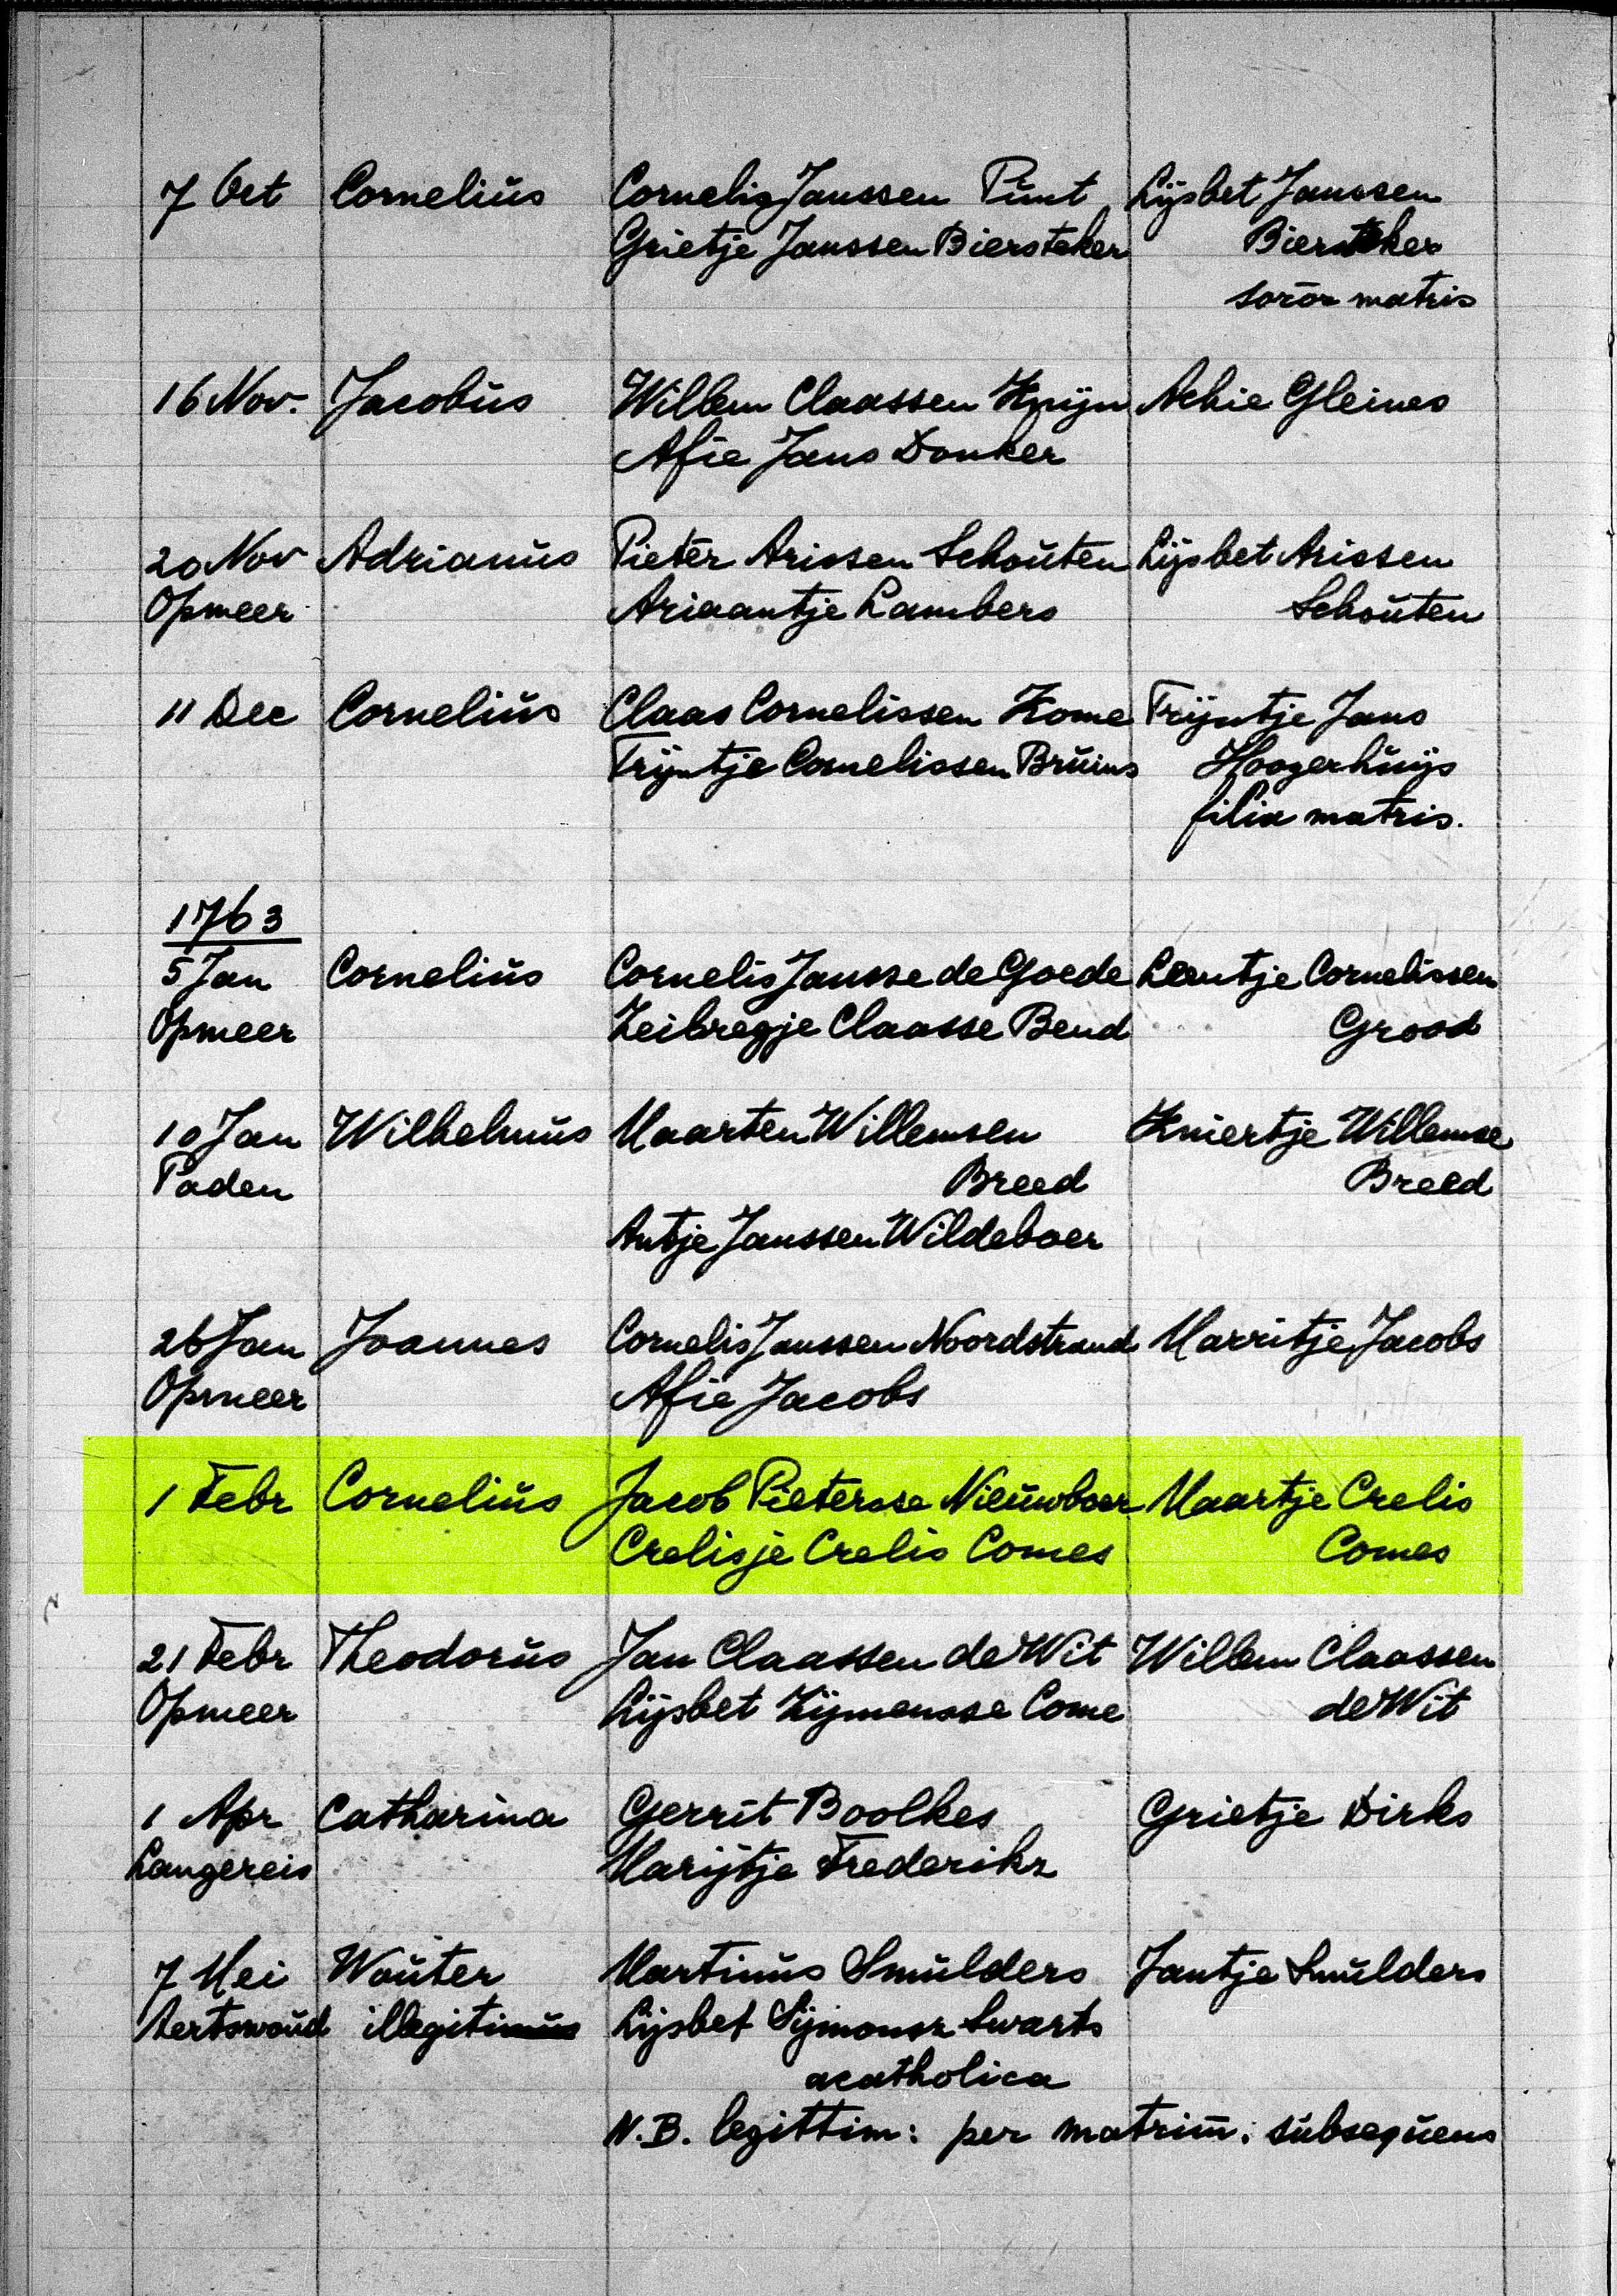 7 Oct Cornelius Cornelis Janssen Punt Lijsbet Janssen
Grietje Janssen Biersteker Biersteker
soror matris
16 Nov. Jacobus Willem Claassen Knijn Achie Gleines
Afie Jans Donker
20 Nov Adrianus Pieter Arissen Schouten Lijsbet Arissen
Opmeer Ariaantje Lambers Schouten
11 Dec Cornelius Claas Cornelissen Kome Trijntje Jans
Trijntje Cornelissen Bruins Hoogerhuijs
filia matris.
1763
5 Jan Cornelius Cornelis Jansse de Goede Leentje Cornelissen
Opmeer Zeibregje Claasse Bend Grood
10 Jan Wilhelmus Maarten Willemsen Kniertje Willemse
Paden Breed Breed
Antje Janssen Wildeboer
26 Jan Joannes Cornelis Janssen Noordstrand Marritje Jacobs
Opmeer Afie Jacobs
1 Febr Cornelius Jacob Pietersse Nieuwboer Maartje Crelis
Crelisje Crelis Comes Comes
21 Febr Theodorus Jan Claassen de Wit Willem Claassen
Opmeer Lijsbet Zijmensse Come de Wit
1 Apr Catharina Gerrit Boolkes Grietje Dirks
Langereis Marijtje Frederikz
7 Mei Wouter Martinus Smulders Jantje Smulders
Aertswoud illegitimus Lijsbet Sijmonsz Swarts
acatholica
N.B. legittim: per matrim: subsequens